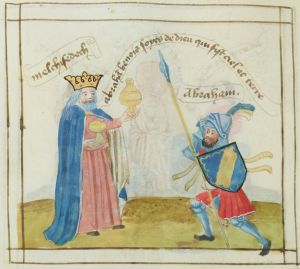 melchisedech
abrahã benois soyes de dieu qui fist ciel et terre
Abraham.